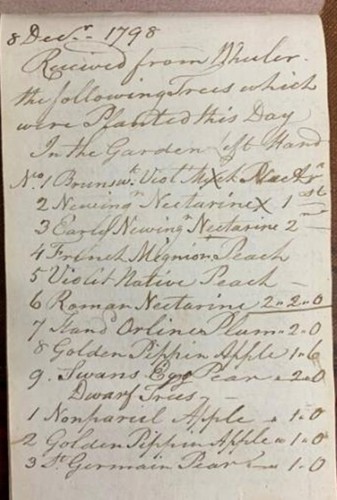 8 Decr. 1798
Received from Wheeler.
the following Trees which
were Planted this Day
In the Garden left Hand
No. 1 Brunswk. Violt
2 Newingn Nectarine x 1st
3 Early Newingn Nectarine 2nd
4 French Mignion Peach
5 Violet Native Peach
6 Roman Nectarine 2=2=0
7 Orline Plum = 2=0
8 Golden Pippin Apple 1=6
9. Swans Egg Pear = 2=0
Dwarf Trees
1 Nonpariel Apple = 1=0
2 Golden Pippin Apple = 1=0
3 St. Germain Pear = 1=0